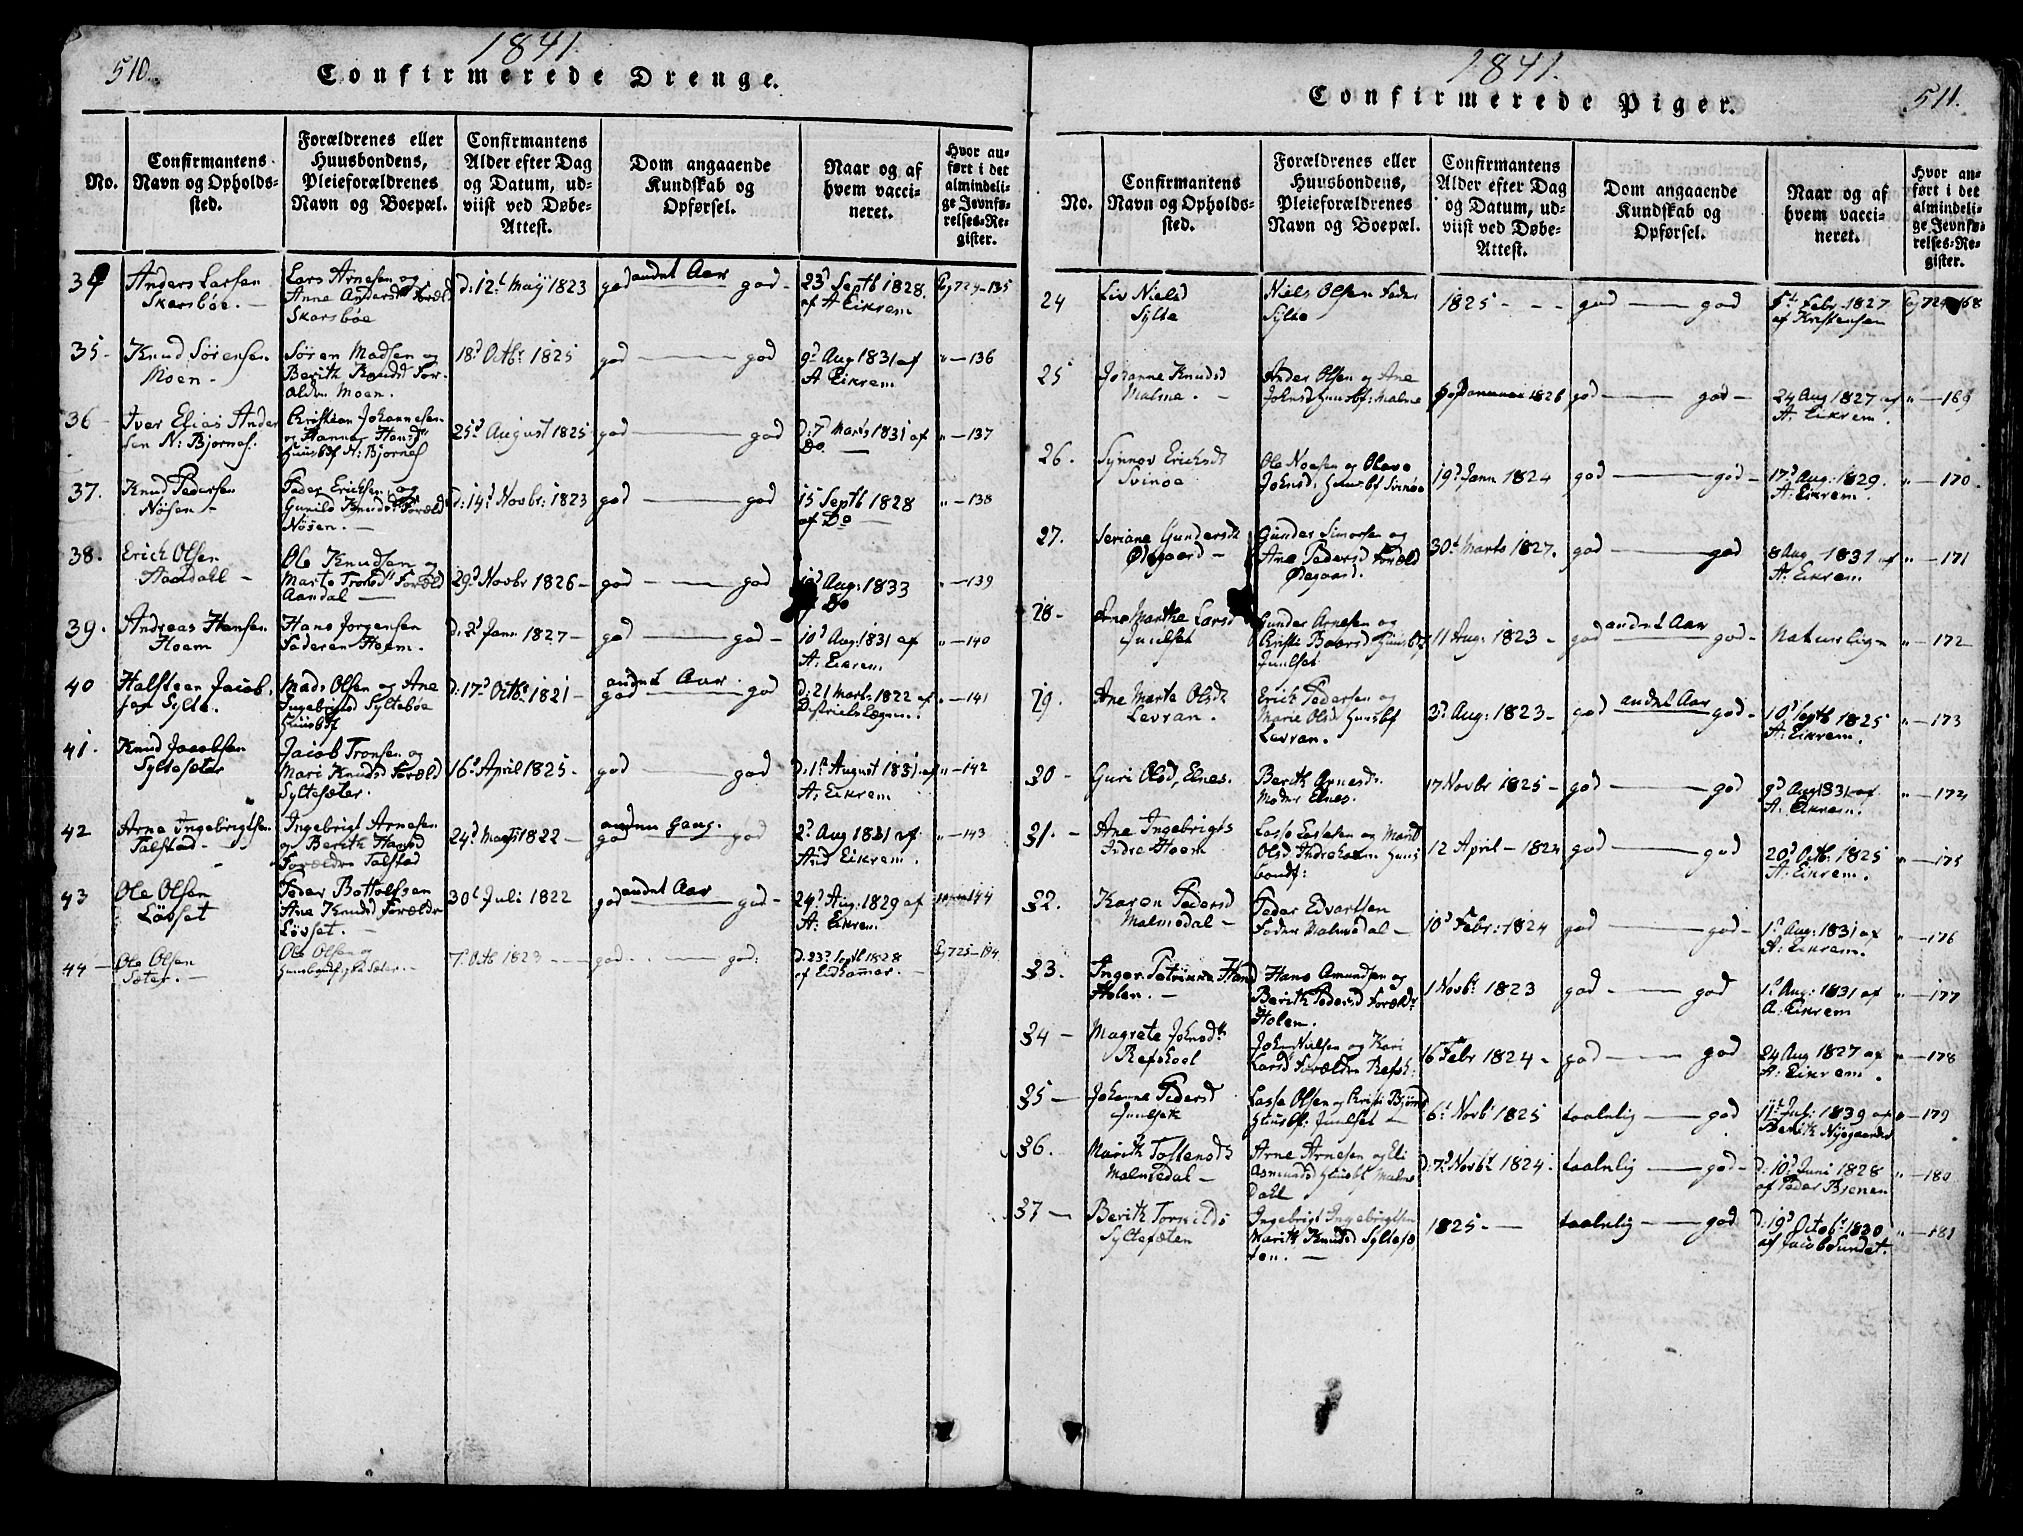 510.
1841
Confirmerede Drenge.
No.
Confirmantens
Navn og Opholds-
sted.
Forældrenes eller
Huusbondens,
Pleieforældrenes
Navn og Boepæl.
Confirmantens
Alder efter Dag
og Datum, ud-
viist ved Døbe-
Attest.
Dom angaaende
Kundskab og
Opførsel.
Naar og af
hvem vacci-
neret.
Hvor an-
ført i det
almindeli-
ge Jevnfø-
relses-Re-
gister.
34
Anders Larsen
Skarsbøe. -
Lars Arnesen og
Anne Andersd Foræld
Skarsbøe
D: 12t Maij 1823
andet Aar
god god -
23d Septb 1828.
af A Eikrem
Pg 724-135
35-
Knud Sørensen
Moen -
Søren Madsen og
Berith Knudsd For-
ældre Moen.
18d Octbr 1825
god god
9d Aug 1831 af
A: Eikrem
" - 136
36
Iver Elias Ander
sen N: Bjørnes.
Christian Johannesen
og Hanna Hansd
Huusbf N: Bjørnes
25d August 1825
god god
D: 7d Marts 1831 af
Do -
" - 137
37.
Knud Pedersen
Nøsen -
Peder Ericksen og
Gunild Knudsd Foræld
Nøsen. -
D: 14d Novbr: 1823
god god
15 Septb 1828
af Do -
" - 138
38.
Erick Olsen
Aandahl -
Ole Knudsen og
Marte Tronsd Foræld
Aandal -
29d Novbr 1826 -
god god
Aug: 1833
af Do
" - 139
39.
Andreas Hansen
Hoem
Hans Jorgensen
Faderen Hoem.
D: 2d Jann 1827 -
god god -
10d Aug: 1831 af
A: Eikrem
" - 140
40
Halsteen Jacob-
sen Sylte.
Mads Olsen og Ane
Ingebrigtsd Syltebøe
Huusbf
D: 17d Octbr 1821 -
andet Aar.
god god
D: 21 Marts 1822 af
Districts Lægen.
" - 141
41.
Knud Jacobsen
Syltesæter
Jacob Tronsen og
Mari Knudsd Foræld
Syltesæter.
16d April 1825 -
god god
D: 1d August 1831 af
A: Eikrem
" - 142
42
Arne Ingebrigtsen
Talstad -
Ingebrigt Arnesen
og Berith Hansd
Forældre Talstad
24d Marts 1822 -
anden Gang.
god god
2d Aug 1831 af
And Eikrem.
" - 143
43
Ole Olsen
Løvset
Peder Bottolfsen
Ane Knudsd Forældre
Løvset. -
30t Juli 1822
andet Aar
god god -
24d Aug: 1829 af
A: Eikrem
144
44 -
Ole Olsen
Sæter. -
Ole Olsen og
Sæter.
7d Octb 1823
god god:
D: 23d Septb 1828
af Eidhammer. -
Pg 725-194
1841.
511.
Confirmerede Piger.
No.
Confirmantens
Navn og Opholds-
sted.
Forældrenes eller
Huusbondens,
Pleieforældrenes
Navn og Boepæl.
Confirmantens
Alder efter Dag
og Datum, ud-
viist ved Døbe-
Attest.
Dom angaaende
Kundskab og
Opførsel.
Naar og af
hvem vacci-
neret.
Hvor an-
ført i det
almindeli-
ge Jevnfø-
relses-Re-
gister.
24
Liv Nielsd
Sylte
Niels Olsen Fader
Sylte
1825 - - -
god god
5t Febr 1827
af Kristensen
Pg 724-168
25
Johanne Knudsd
Malme. -
Ander Olsen og Ane
Johnsd Huusbf: Malme
Januar 1826
god god -
24 Aug 1827 af
A: Eikrem.
" - 169
26.
Synnov Ericksdt
Svinøe
Ole Noesen og Olava
Johnsd: Huusbf Svinøe
19d Jann 1824
god god -
17d Aug: 1829.
A: Eikrem.
" - 170
27.
Seriane Gundersdt
Øegaard -
Gunder Simonsen og
Ane Pedersd Foræld
Øegaard.
30t Marts 1827.
god god
8 Aug 1831 af
A: Eikrem
" - 171
28 -
Ane Marthe Larsd
Juulset
Gunder Arnesen og
Christi Baarsd Huusbf
Juulset
11 Aug: 1823 -
andet Aar
god god -
Naturlig -
" - 172
29.
Ane Marte Olsdt
Levran.
Erick Pedersen og
Marie Olsd Huusbf
Levran.
3d Aug: 1823 -
andet Aar
god god -
10d Septb 1825
A: Eikrem.
" - 173
30 -
Guri Olsd, Elnes.
Berith Arnesdt
Moder Elnes.
17 Novbr 1825 -
god god
9d Aug 1831 af
A. Eikrem.
" - 174
31. -
Ane Ingebrigts
Indre Hoem
Lasse Lassesen og Marit
Olsd Indrehoem Huus
bondf:
12 April - 1824
god god
20d Octb: 1825
A: Eikrem.
" - 175
32.
Karen Pedersd
Malmedal -
Peder Edvartsen
Fader Malmedal -
10d Febr: 1824
god god -
1d Aug: 1831 af
A: Eikrem.
" - 176
33.
Inger Petrikka Hansd
Holen. -
Hans Amundsen og
Berith Pedersd Forældr
Holen.
1 Novbr 1823
god god
1d Aug: 1831 af
A: Eikrem
" - 177
34 -
Magrete Johnsdt
Refskoel
John Nielsen og Kari
Larsd Forældre Refsk:
16 Febr 1824 -
god god
24 Aug 1827 af
A: Eikrem.
" - 178
35 -
Johanna Pedersd
Juulset
Lasse Olsen og Christi Bjørnsd
Huusbf: Juulset -
6t Novbr 1825
taalelig god
11t Juli 1839 af
Berith Nyegaarder
" - 179
36.
Marith Tostensdt
Malmedal -
Arne Arnesen og Eli
Asmundsd Huusbf Malme
Dahl
D: 7d Novbr 1824 -
taalelig god -
D: 10d Juni 1828
af Peder Bjenen
" - 180
37 -
Berith Torkilds
Syltesæten
Ingebrigt Ingebrigtsen
Marith Knudsd Syltesæ
ten. -
1825 - -
taalelig god
D: 19d Octobr 1820
af Jacob Sundet.
" - 181